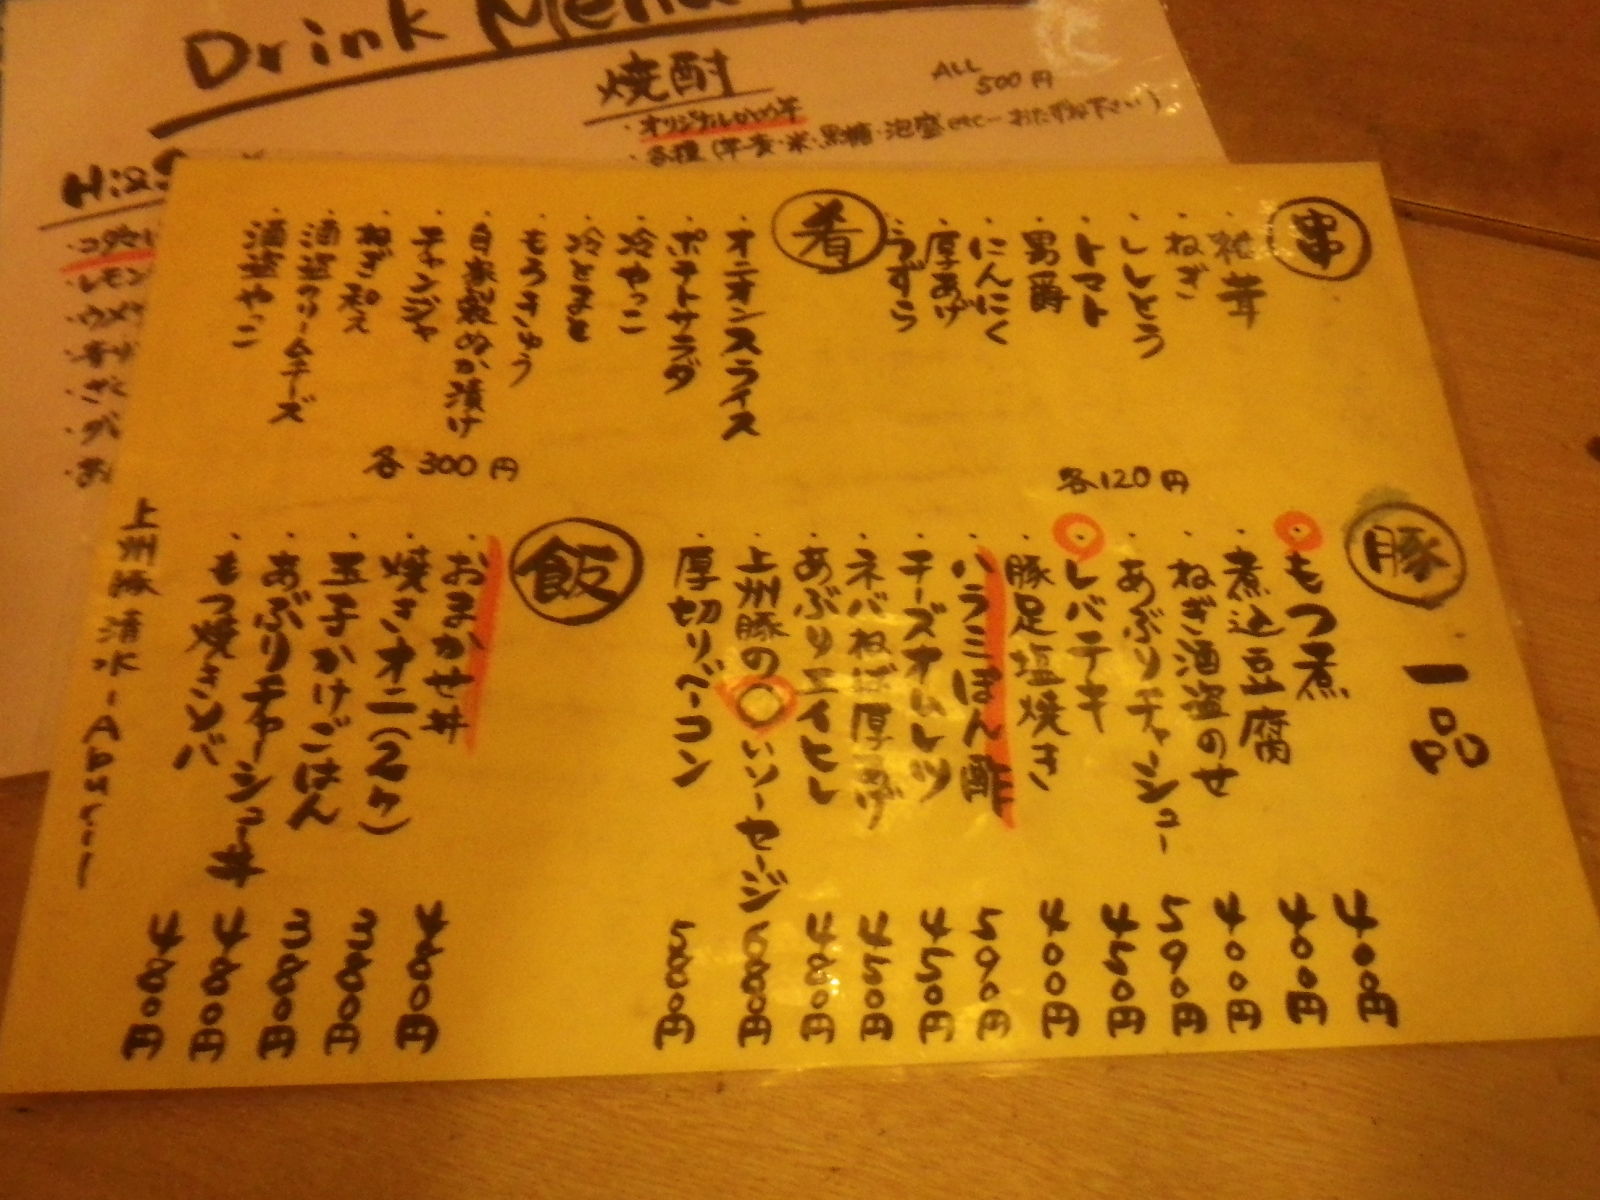 Drink Menu
焼酎
ALL 500円
・オリジナルかめ芋
・各種(芋・麦・米・黒糖・泡盛etc…おたずね下さい)
・レモン
串
・椎茸
・ねぎ
・ししとう
・トマト
・男爵
・にんにく
・厚あげ
・うずら
各120円
肴
・オニオンスライス
・ポテトサラダ
・冷やっこ
・冷とまと
・もろきゅう
・自家製ぬか漬け
・チャンジャ
・ねぎ和え
・酒盗クリームチーズ
・酒盗やっこ
各300円
豚一品
・もつ煮 400円
・煮込豆腐 400円
・ねぎ酒盗のせ 400円
・あぶりチャーシュー 590円
・レバテキ 450円
・豚足塩焼き 400円
・ハラミぽん酢 590円
・チーズオムレツ 450円
・ネバねば厚あげ 450円
・あぶりエイヒレ 400円
・上州豚の〇いソーセージ
・厚切りベーコン
飯
・おまかせ丼 400円
・焼きオニ(2ヶ) 300円
・玉子かけごはん 300円
・あぶりチャーシュー丼 400円
・もつ焼きソバ 400円
上州豚 清水-Aburi-